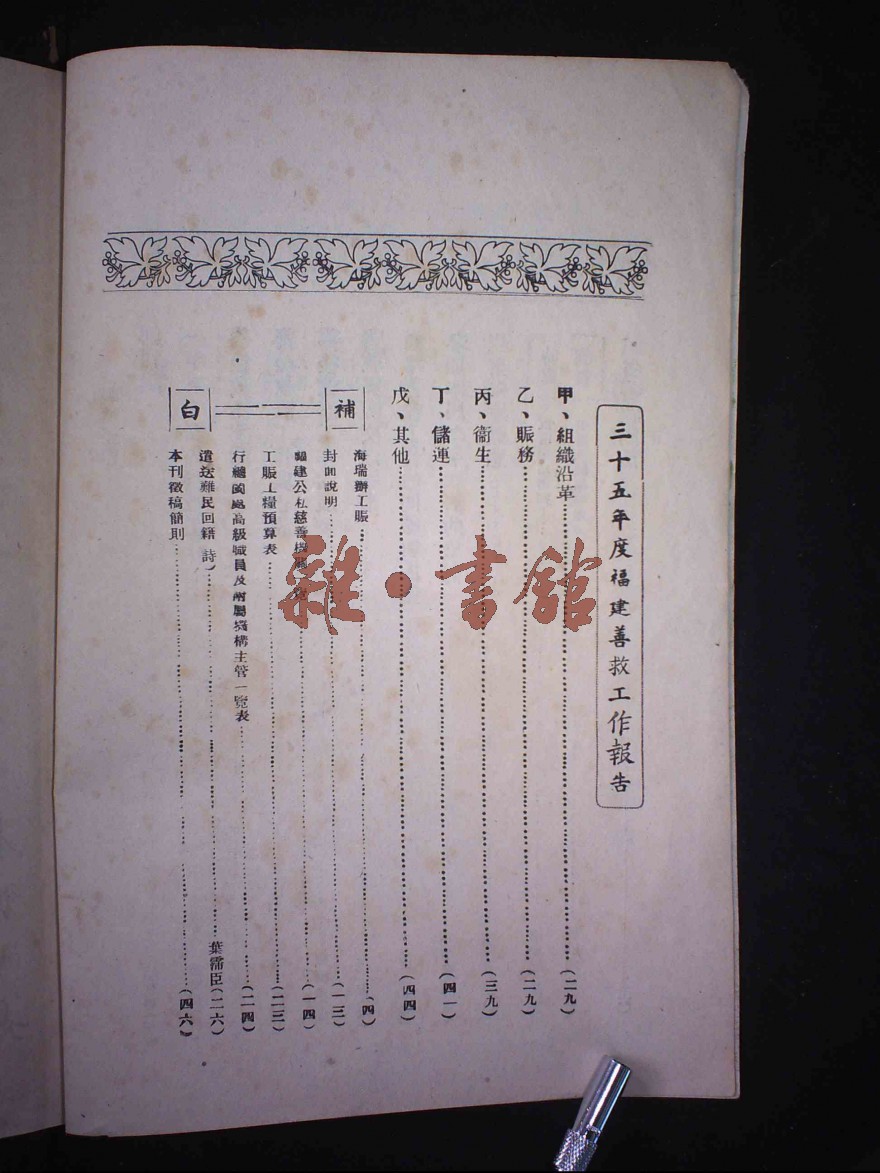 三十五年度福建善救工作報告
甲、組織沿革……(二九)
乙、賑務……(二九)
丙、衞生……(三九)
丁、儲運……(四一)
戊、其他……(四四)
補白
海瑞辦工賑……(四)
封面說明……(一三)
福建公私慈善機關一覽……(一四)
工賑工糧預算表……(二三)
行總閩處高級職員及附屬機構主管一覽表……(二四)
遣送難民回籍 詩)……葉霈臣(二六)
本刊徵稿簡則……(四六)
雜·書館